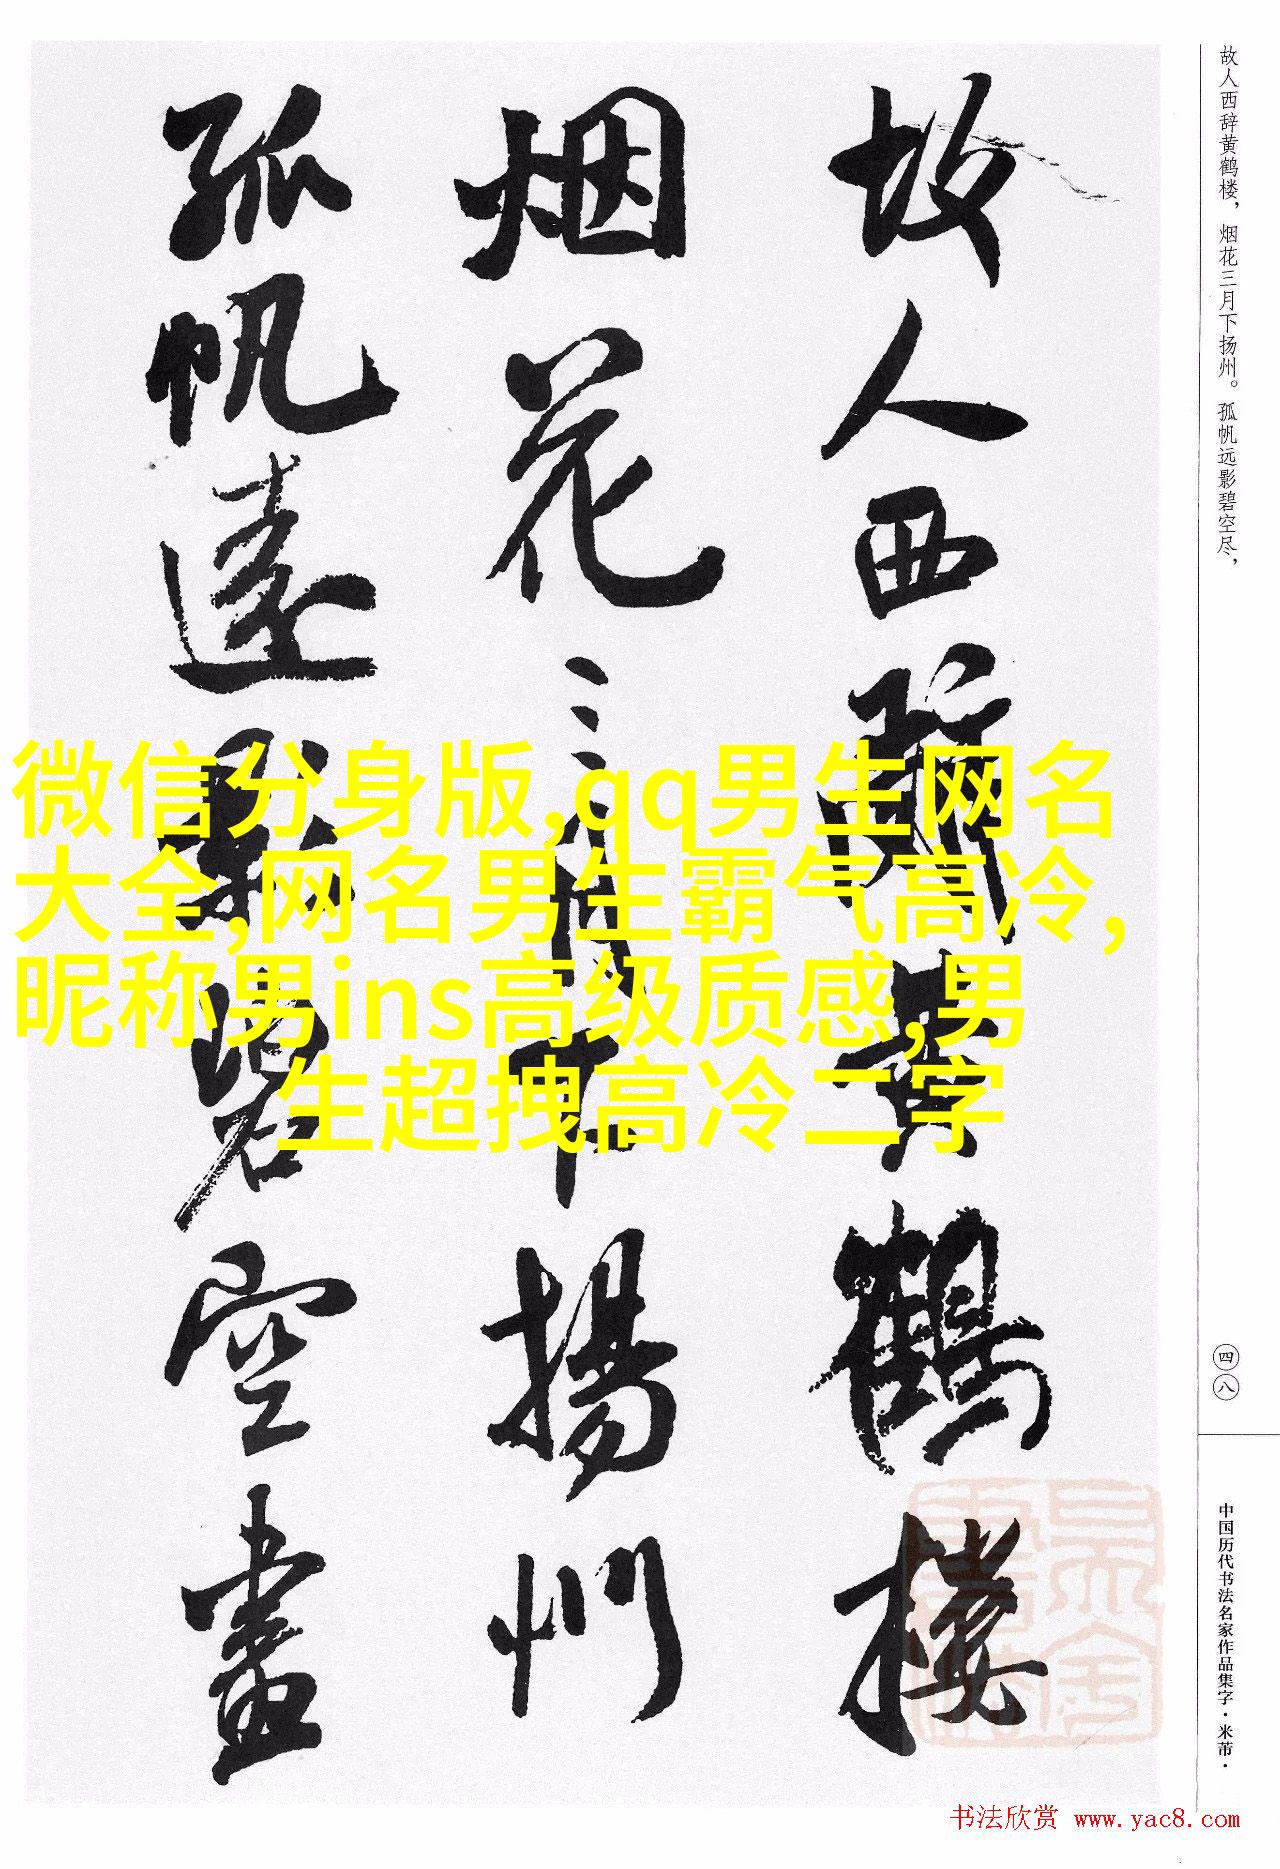 故人西辞黄鹤楼，烟花三月下扬州。孤帆远影碧空尽，
故人西辞黄鹤楼
烟花三月下揚州
孤帆遠影碧空盡
微信分身版,qq男生网名
大全,网名男生霸气高冷,
昵称男ins高级质感,男
生超拽高冷二字
四八
中国历代书法名家作品集字·米芾·
书法欣赏 www.yac8.com